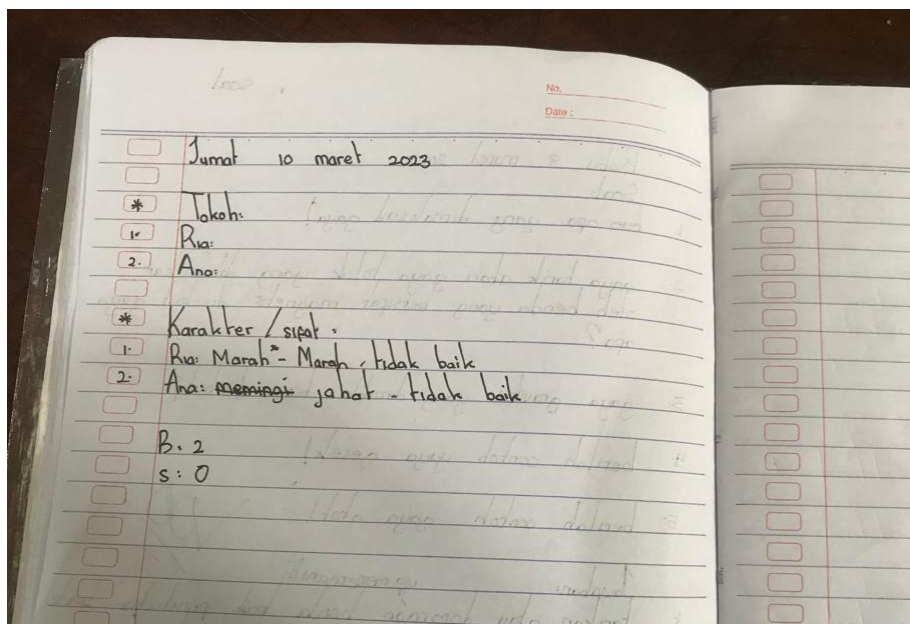 No.
Date :
Jumat 10 maret 2023
* Tokoh:
1. Ria:
2. Ana:
* Karakter / sifat :
1. Ria: Marah" - Marah, tidak baik
2. Ana: memingi jahat - tidak baik
B: 2
S: 0